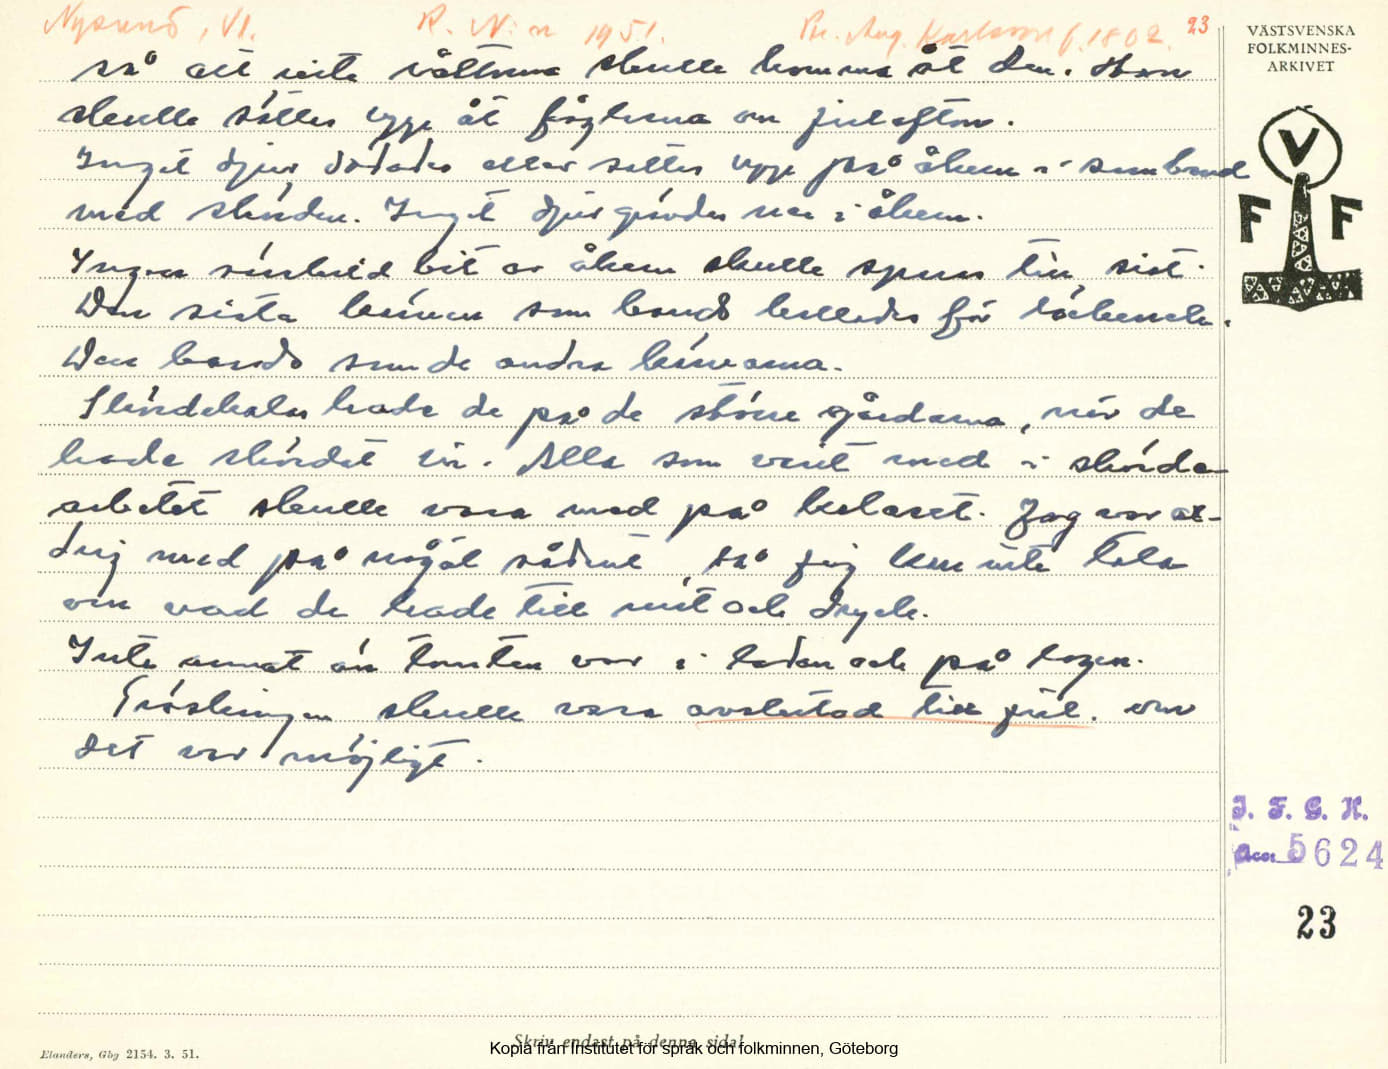 Nysund, Vl. R. N:n 1951. Br. Aug. Karlsson f. 1802. 23
VÄSTSVENSKA
FOLKMINNES-
ARKIVET
V
F F
så att inte råttorna skulle komma åt den. Man
skulle sätta upp åt fåglarna om julafton.
Inget djur dödades eller sattes upp på åkern i samband
med skörden. Inget djur grävdes ner i åkern.
Ingen särskild bit av åkern skulle sparas till sist.
Den sista kärven som bands kallades för
Den bands som de andra kärvarna.
Skördekalas hade de på de större gårdarna, när de
hade skördat in. Alla som varit med i skörde-
arbetet skulle vara med på kalaset. Jag var al-
drig med på något sådant, så jag kan inte tala
om vad de hade till mat och dryck.
Inte annat än tomten var i ladan och på logen.
Tröskningen skulle vara avslutad till jul, om
det var möjligt.
I. F. G. H.
Acc. 5624
23
Skriv endast på denna sida!
Kopia från Institutet för språk och folkminnen, Göteborg
Elanders, Gbg 2154. 3. 51.